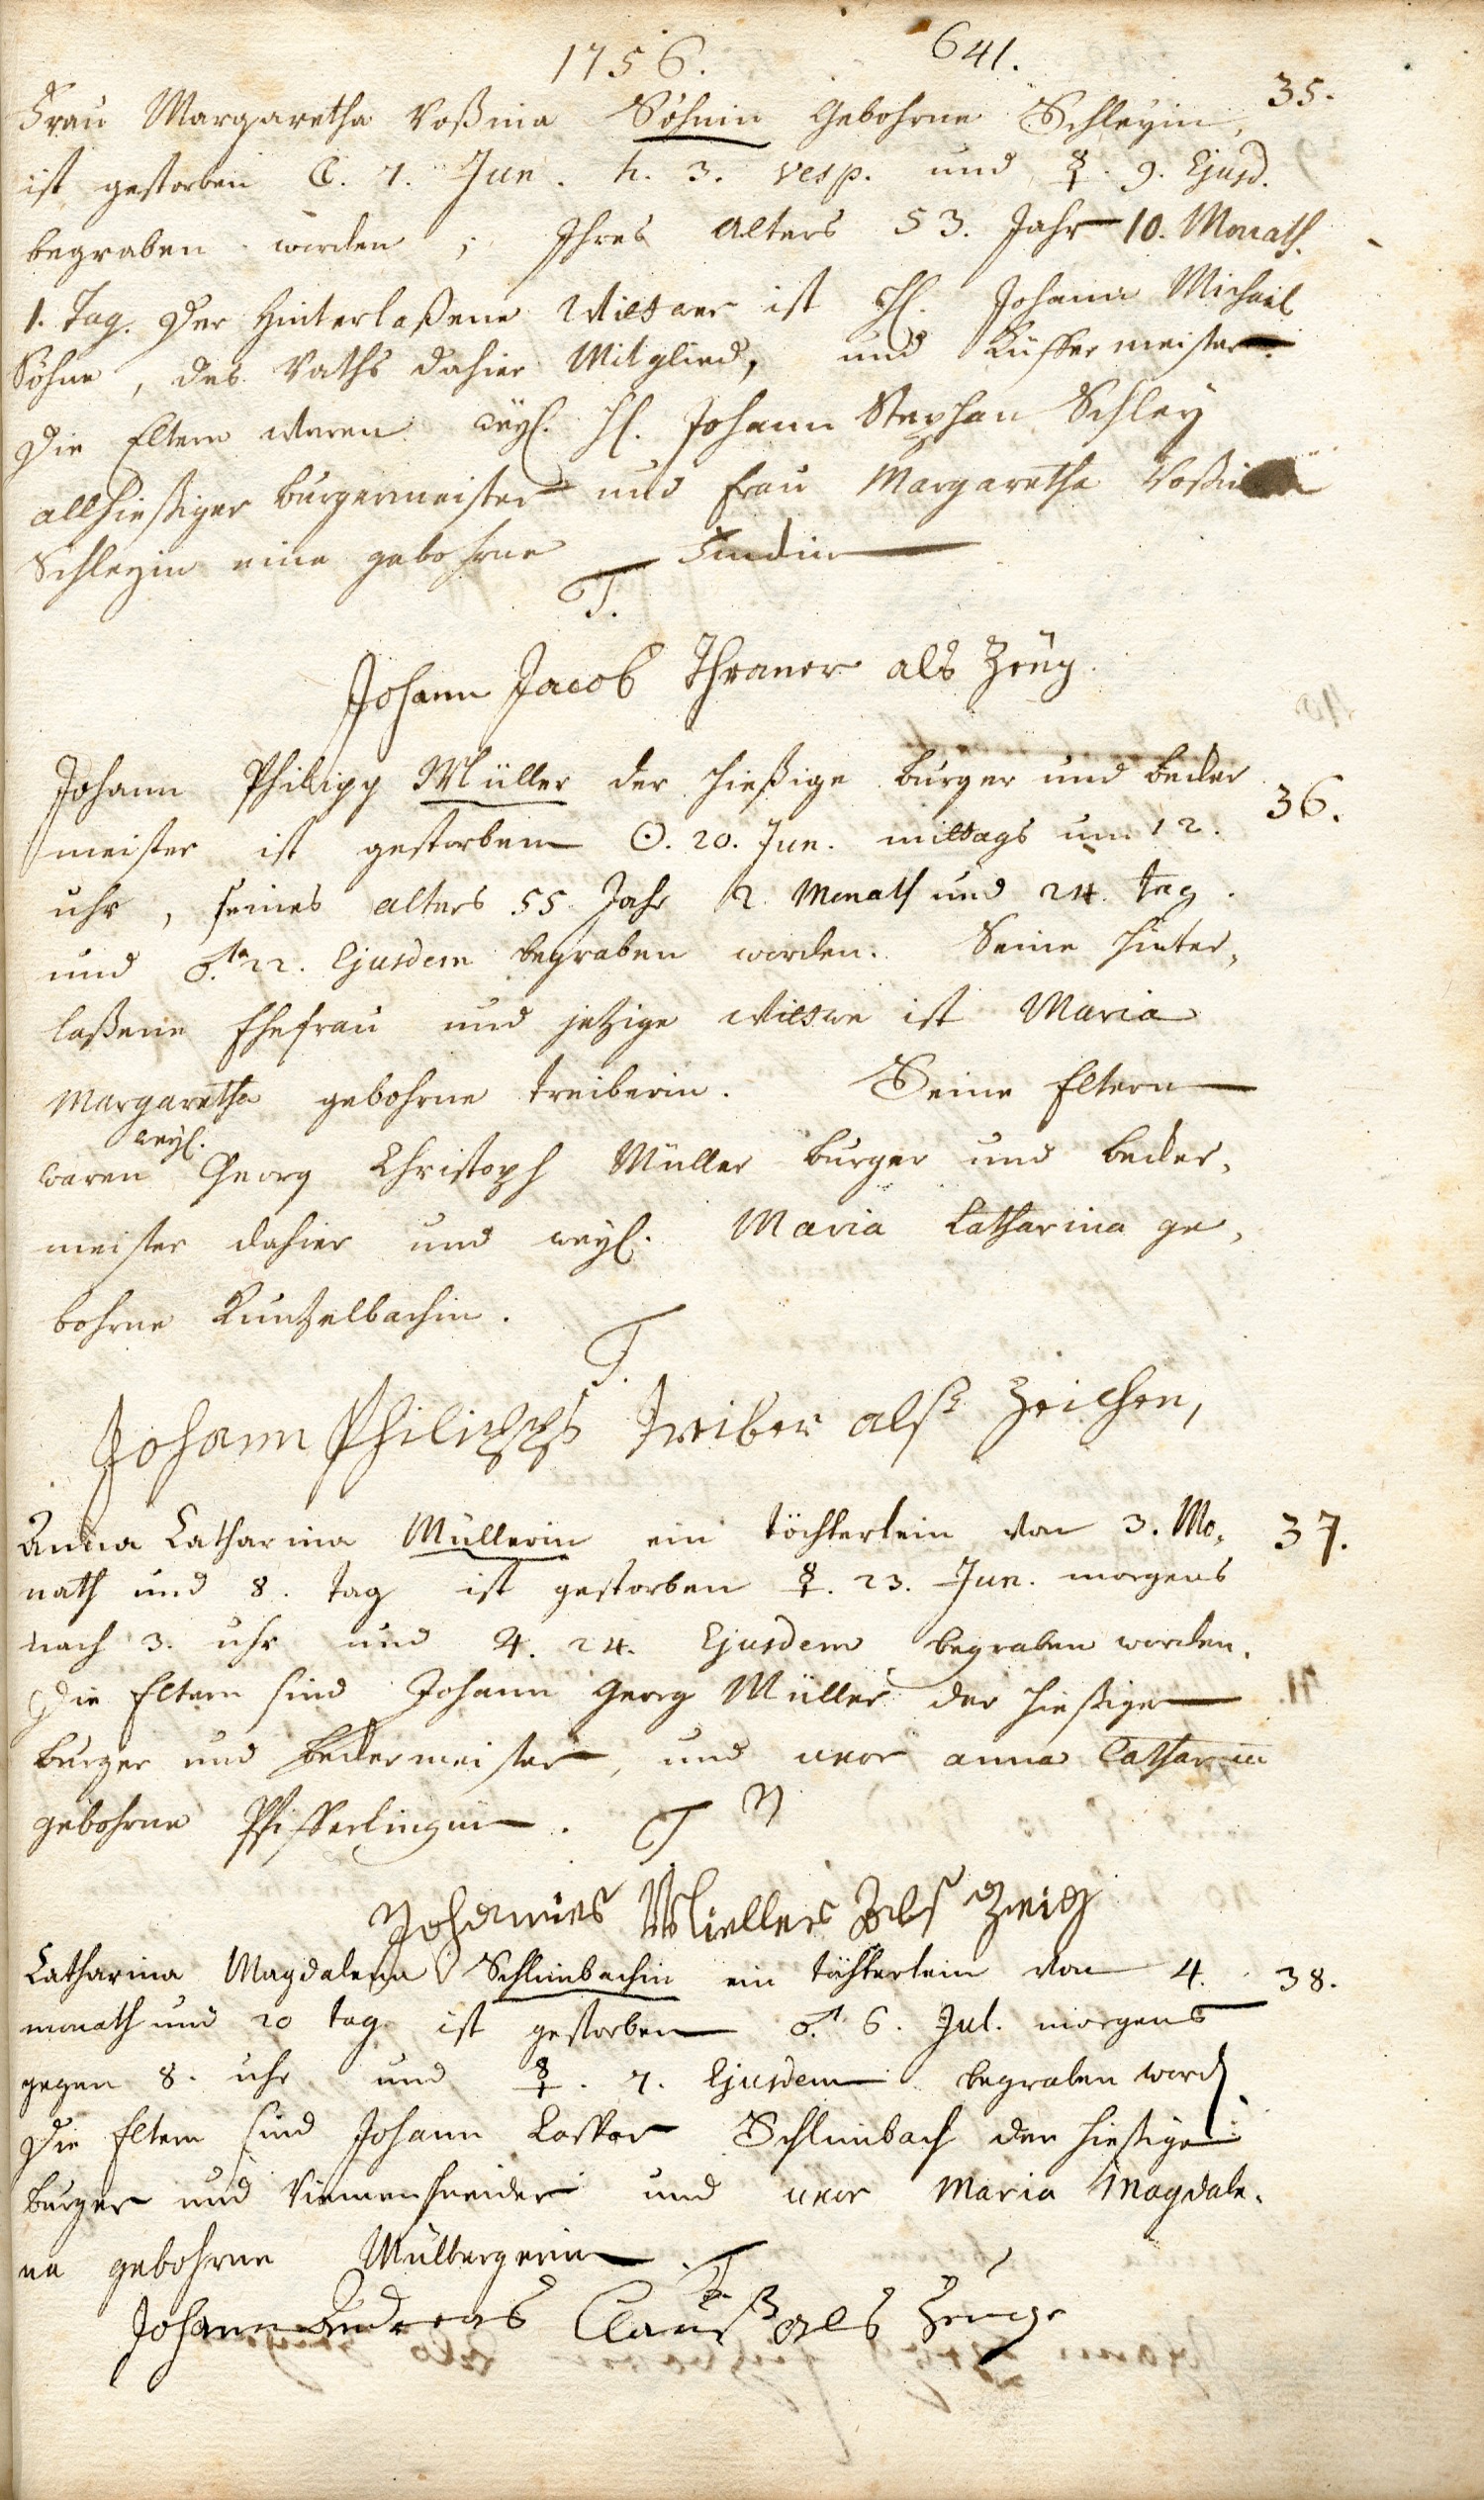 1756. 641.
Frau Margaretha Roßina Söhnin Gebohrne Schleyin, 35.
ist gestorben ☾. 7. Jun. h. 3. vesp. und ☿. 9. Ejusd.
begraben worden; Ihres Alters 53. Jahr 10. Monath.
1. Tag. Der Hinterlaßene Wittwer ist H. Johann Michael
Söhne, des Raths dahier Mitglied, und Küffermeister.
Die Eltern waren weyl. H. Johann Stephan Schley
allhießiger Burgermeister und Frau Margaretha Roßina
Schleyin eine gebohrne
T.
Johann Jacob Thraner als Zeüg.
Johann Philipp Müller der hießige Burger und Becker 36.
meister ist gestorben ☉. 20. Jun. mittags um 12.
uhr, seines alters 55 Jahr 2. Monath und 24. tag.
und ♂. 22. Ejusdem begraben worden. Seine hinter,
laßene Ehefrau und jetzige Wittwe ist Maria
Margaretha gebohrne Treiberin. Seine Eltern
weyl.
waren Georg Christoph Müller Burger und Becker,
meister dahier und weyl. Maria Catharina ge,
bohrne Kuntzelbachin.
T.
Johann Philipps Treiber alß Zeichen,
Anna Catharina Müllerin ein töchterlein von 3. Mo, 37.
nath und 8. tag ist gestorben ☿. 23. Jun. morgens
nach 3. uhr und ♃. 24. Ejusdem begraben worden.
Die Eltern sind Johann Georg Müller der hießige
Burger und Beckermeister, und uxor anna Catharina
gebohrne Pfifferlingin. T
Johannes Müller Zeig
Catharina Magdalena Schlimbachin ein töchterlein von 4. 38.
monath und 20 tag ist gestorben ♂. 6. Jul. morgens
gegen 8. uhr und ☿. 7. Ejusdem begraben word.
Die Eltern sind Johann Caspar Schlimbach der hießige
Burger und Riemenschneider und uxor Maria Magdale,
na gebohrne Müllbergerin. T.
Johann Andreas Clauß als Zeuge